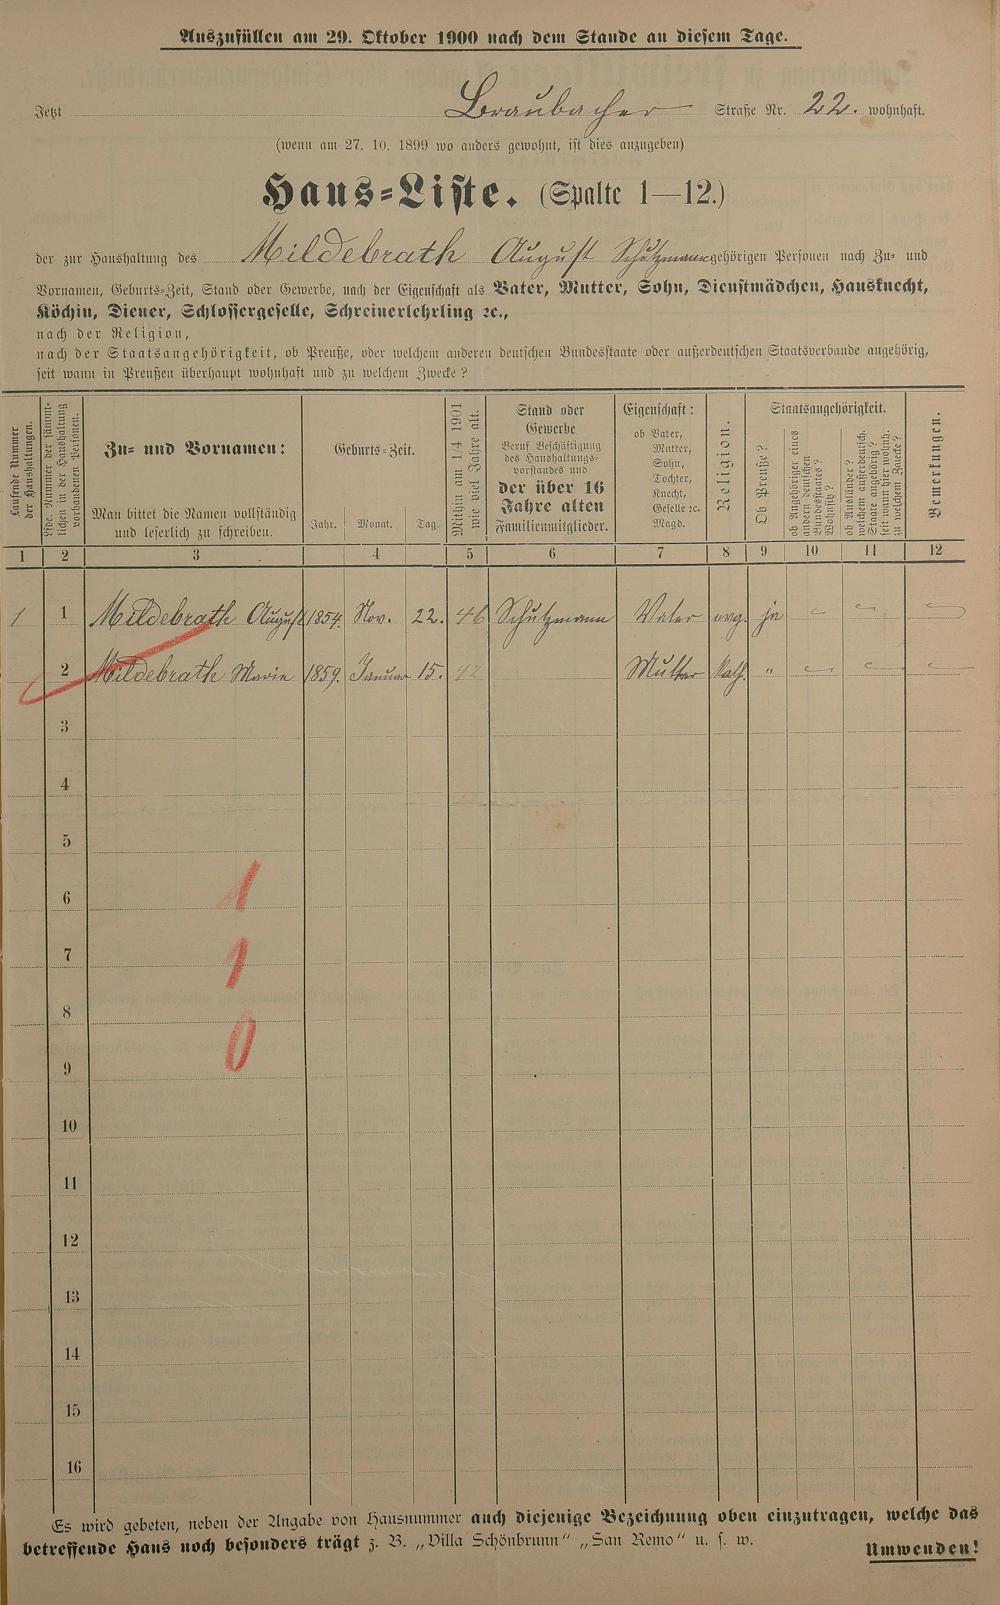 Auszufüllen am 29. Oktober 1900 nach dem Stande an diesem Tage.
Jetzt Braubacher Straße Nr. 22. wohnhaft.
(wenn am 27. 10. 1899 wo anders gewohnt, ist dies anzugeben)
Haus-Liste. (Spalte 1—12.)
der zur Haushaltung des Mildebrath August Schutzmann gehörigen Personen nach Zu- und
Vornamen, Geburts-Zeit, Stand oder Gewerbe, nach der Eigenschaft als Vater, Mutter, Sohn, Dienstmädchen, Hausknecht,
Köchin, Diener, Schlossergeselle, Schreinerlehrling ꝛc.,
nach der Religion,
nach der Staatsangehörigkeit, ob Preuße, oder welchem anderen deutschen Bundesstaate oder außerdeutschen Staatsverbande angehörig,
seit wann in Preußen überhaupt wohnhaft und zu welchem Zwecke?
Laufende Nummer
der Haushaltungen.
Lfde. Nummer der sämmt-
lichen in der Haushaltung
vorhandenen Personen.
Zu- und Vornamen:
Man bittet die Namen vollständig
und leserlich zu schreiben.
Geburts-Zeit.
Jahr. Monat. Tag.
Mithin am 1/4 1901
wie viel Jahre alt.
Stand oder
Gewerbe
Beruf Beschäftigung
des Haushaltungs-
vorstandes und
der über 16
Jahre alten
Familienmitglieder.
Eigenschaft:
ob Vater,
Mutter,
Sohn,
Tochter,
Knecht,
Geselle ꝛc.
Magd.
Religion.
Staatsangehörigkeit.
Ob Preuße?
ob Angehöriger eines
andern deutschen
Bundesstaates?
Wohnsitz?
ob Ausländer?
welchem außerdeutsch.
Staate angehörig?
seit wann hier wohnh.
zu welchem Zwecke?
Bemerkungen.
1 2 3 4 5 6 7 8 9 10 11 12
1 1 Mildebrath August 1854. Nov. 22. 46 Schutzmann Vater evg. ja
2 Mildebrath Marie 1859. Januar 15. 42 Mutter kath. "
3
4
5
6 1
7 1
8
9 0
10
11
12
13
14
15
16
Es wird gebeten, neben der Angabe von Hausnummer auch diejenige Bezeichnung oben einzutragen, welche das
betreffende Haus noch besonders trägt z. B. „Villa Schönbrunn“ „San Remo“ u. s. w.
Umwenden!